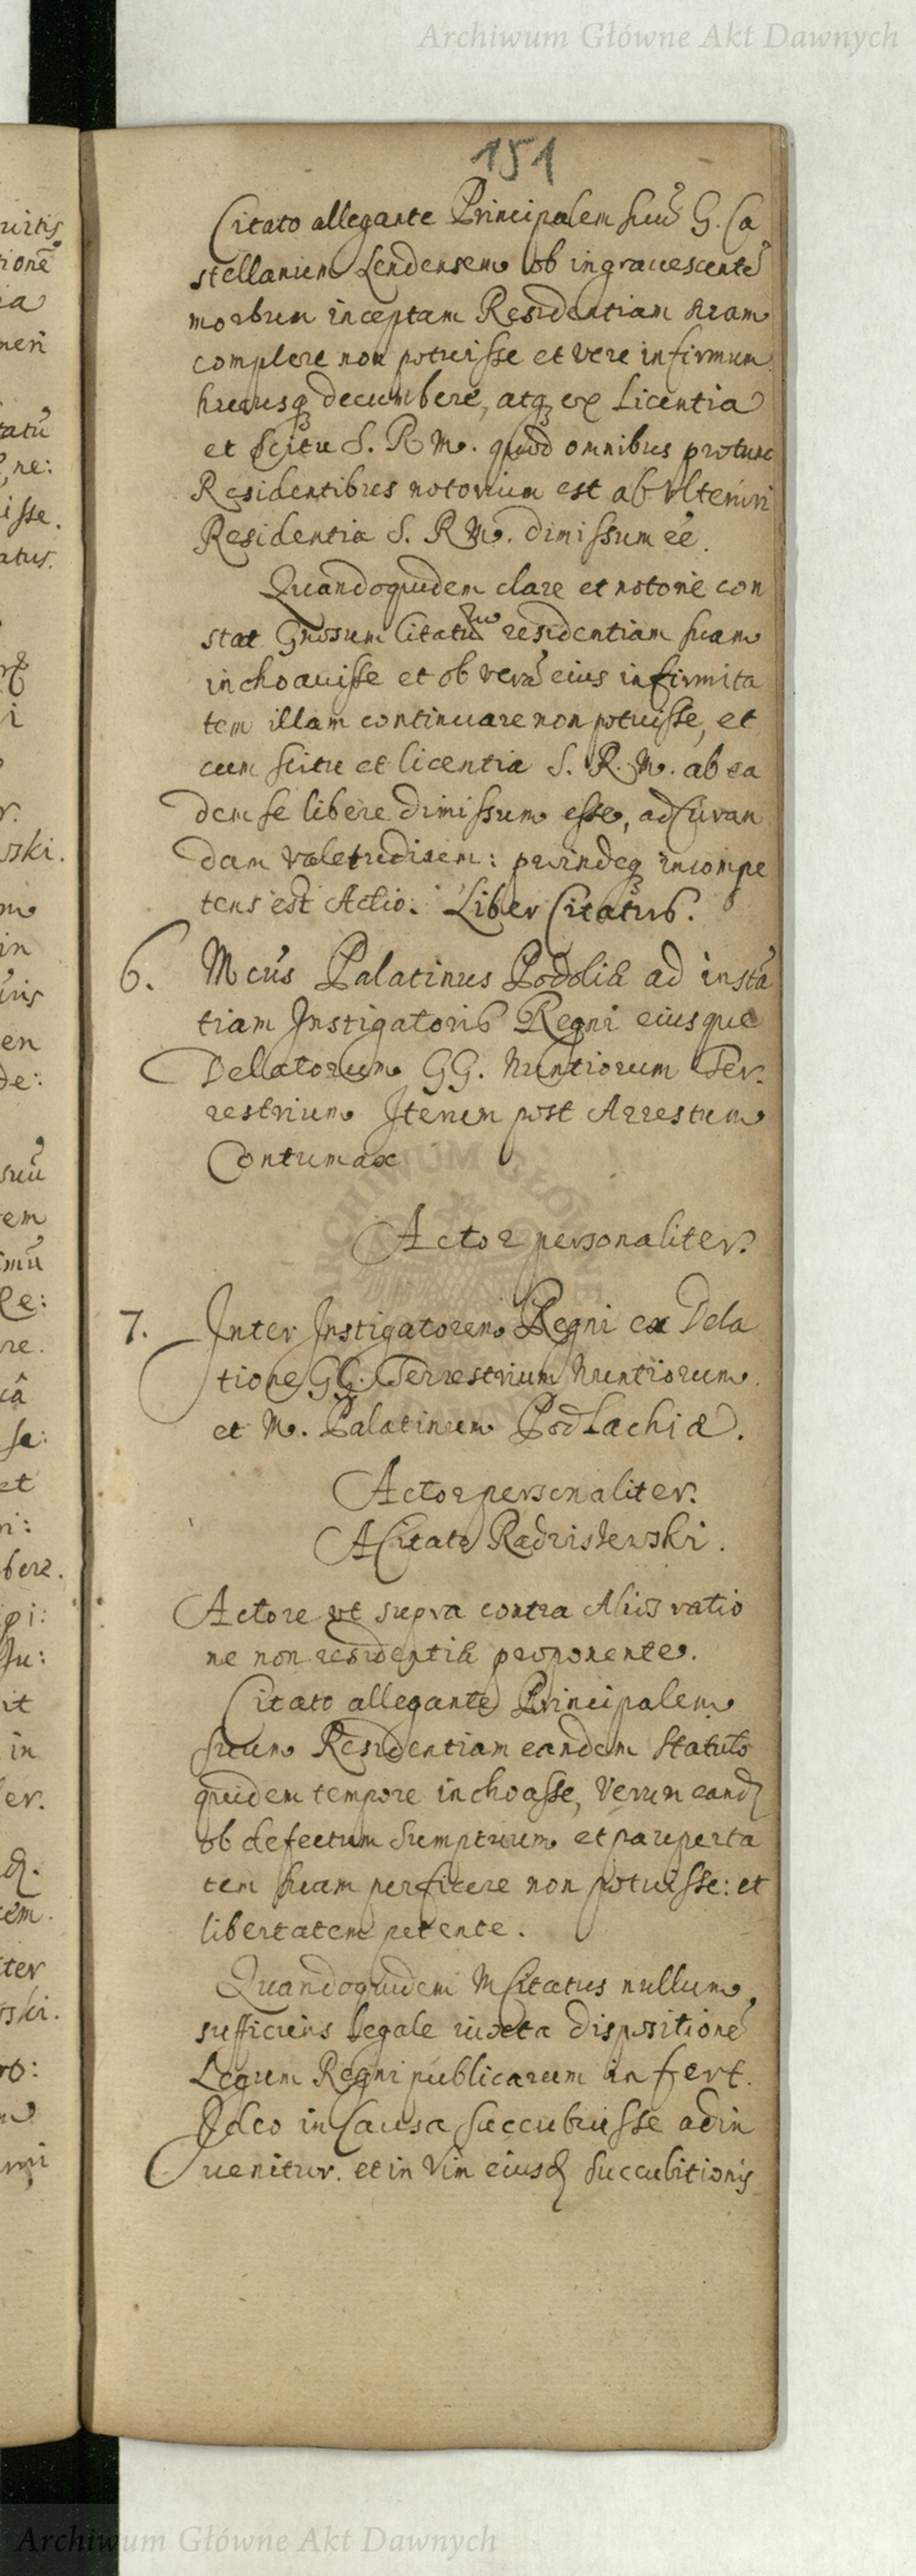 Archiwum Główne Akt Dawnych
151
Citato allegante Principalem suũ G. Ca
stellanum Lendensem ob ingrauescentẽ
morbum inceptam Residentiam suam
complere non potuisse et vere infirmum
hucusq decumbere, atq ex Licentia
et Scitu S. R M. quod omnibus protunc
Residentibus notorium est ab vlteriori
Residentia S. R M. dimissum eẽ.
Quandoquidem clare et notorie con
stat Gnosum Citatũ residentiam suam
inchoauisse et ob verã eius infirmita
tem illam continuare non potuisse, et
cum scitu et licentia S. R. M. ab ea
dem se libere dimissum esse, ad Curan
dam valetudinem: proindeq incompe
tens est Actio. Liber Citatus.
6. Mcũs Palatinus Podoliæ ad instã
tiam Instigatoris Regni eiusque
Dellatorum GG. Nuntiorum Ter-
restrium Iterum post Arrestum
Contumax
Actor personaliter.
7. Inter Instigatorem Regni ex Dela
tione GG. Terrestrium Nuntiorum.
et M. Palatinum Podlachiæ.
Actor personaliter.
A Citato Radziszewski.
Actore vt supra contra Alios ratio
ne non residentiæ proponente.
Citato allegante Principalem
suum Residentiam eandem Statuto
quidem tempore inchoasse, Verum eand
ob defectum Sumptuum et pauperta
tem suam perficere non potuisse: et
libertatem petente.
Quandoquidem M Citatus nullum
sufficiens legale iuxta dispositionẽ
Legum Regni publicarum infert.
Ideo in Causa succubuisse adin
uenitur. et in Vim eiusd Succubitionis
uirtis
tionẽ
ia
meri
tatũ
ne:
isse.
atus.
i
r.
wski.
m
in
uris
en
de:
suũ
em
imũ
Re:
re.
câ
se:
et
ri:
bere.
pi:
su:
it
in
er.
em.
ter
ski.
ro:
Archiwum Główne Akt Dawnych